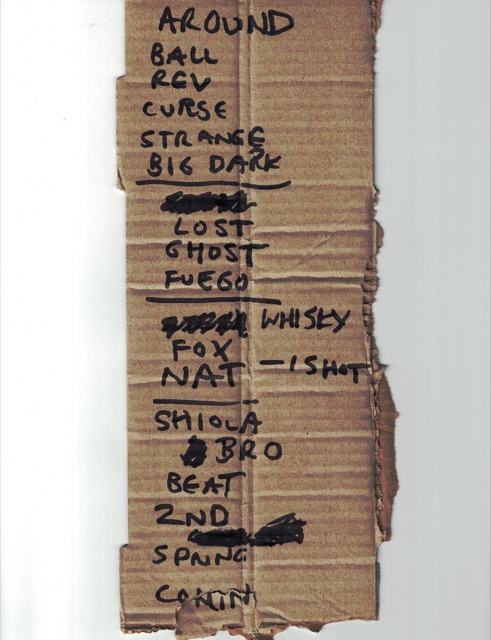 AROUND
BALL
REV
CURSE
STRANGE
BIG DARK
LOST
GHOST
FUEGO
WHISKY
FOX
NAT - 1 SHOT
SHIOLA
BRO
BEAT
2ND
SPNNG